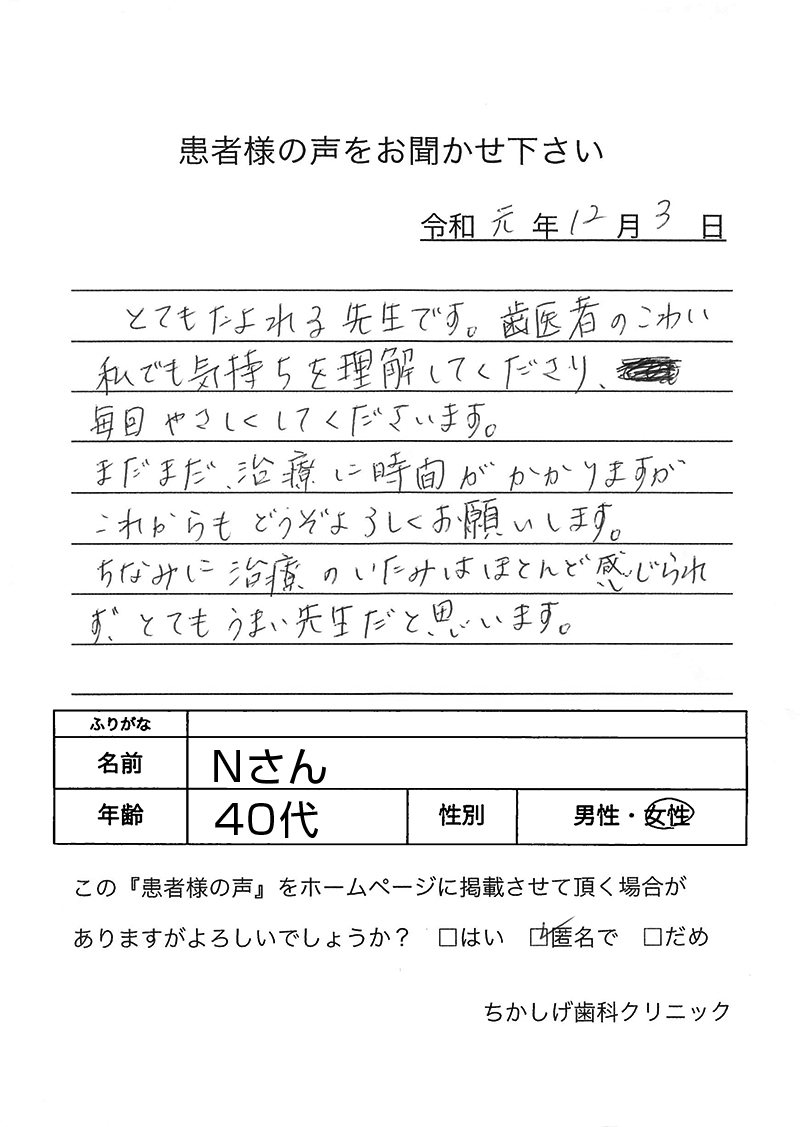 患者様の声をお聞かせ下さい
令和 元 年 12 月 3 日
とてもたよれる先生です。歯医者のこわい
私でも気持ちを理解してくださり、
毎回やさしくしてくださいます。
まだまだ、治療に時間がかかりますが
これからもどうぞよろしくお願いします。
ちなみに治療のいたみはほとんど感じられ
ず、とてもうまい先生だと思います。
ふりがな
名前 Nさん
年齢 40代 性別 男性・女性
この『患者様の声』をホームページに掲載させて頂く場合が
ありますがよろしいでしょうか? □はい □匿名で □だめ
ちかしげ歯科クリニック